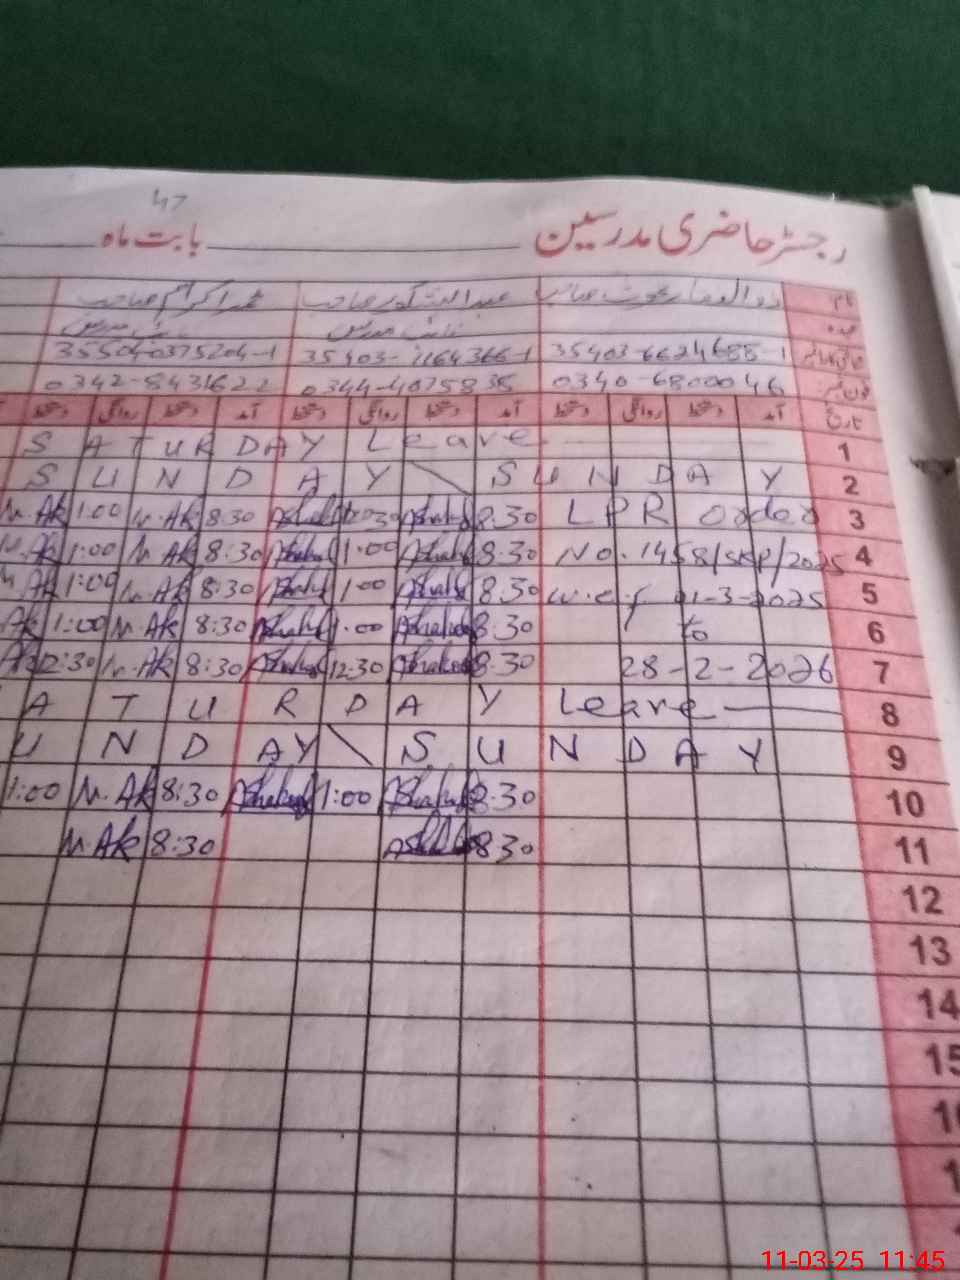 47
رجسٹر حاضری مدرسین بابت ماہ
نام ذوالفقار صاحب عبدالشکور صاحب محمد اکرام صاحب
عہدہ نائب مدرس
35403-6624655-1 35403-1164366-1 35504-0375204-1
0340-6800046 0344-4075835 0342-8431622
تاریخ آمد دستخط روانگی دستخط آمد دستخط روانگی دستخط آمد دستخط روانگی دستخط
SATURDAY Leave 1
SUNDAY \ SUNDAY 2
M.Ak 1:00 M.Ak 8:30 8.30 LPR order 3
M.Ak 1:00 M.Ak 8:30 1:00 8.30 No. 1458/SKP/2025 4
M.Ak 1:00 M.Ak 8:30 1:00 8.30 w.e.f 01-3-2025 5
Ak 1:00 M.Ak 8:30 1.00 8.30 to 6
Ak 12:30 M.Ak 8:30 12.30 8.30 28-2-2026 7
ATURDAY Leave 8
UNDAY \ SUNDAY 9
1:00 M.Ak 8:30 1:00 8.30 10
M.Ak 8:30 8.30 11
12
13
14
15
11-03-25 11:45